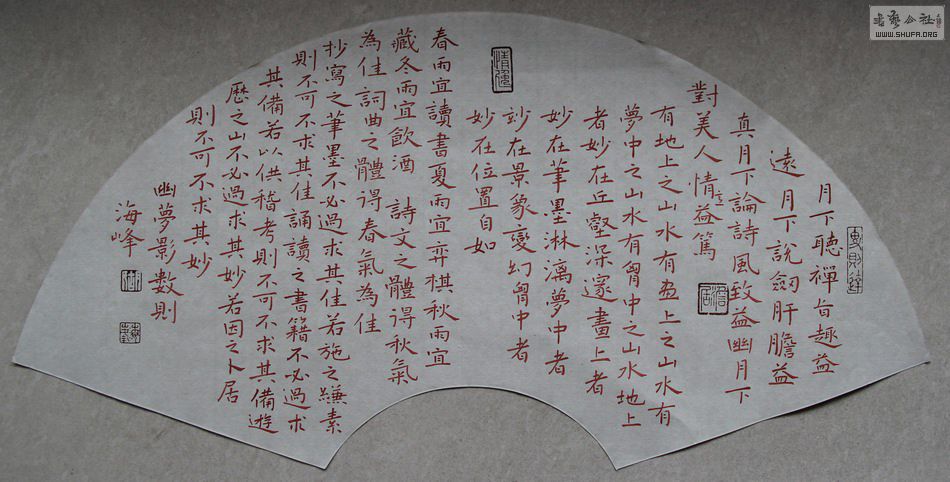 月下聽禪旨趣益
遠月下說劔肝膽益
真月下論詩風致益幽月下
對美人情意益篤
有地上之山水有画上之山水有
夢中之山水有胷中之山水地上
者妙在丘壑深邃畫上者
妙在筆墨淋漓夢中者
妙在景象變幻胷中者
妙在位置自如
春雨宜讀書夏雨宜弈棋秋雨宜
藏冬雨宜飲酒 詩文之體得秋氣
為佳詞曲之體得春氣為佳
抄寫之筆墨不必過求其佳若施之縑素
則不可不求其佳誦讀之書籍不必過求
其備若以供稽考則不可不求其備遊
歷之山不必過求其妙若因之卜居
則不可不求其妙
幽夢影數則
海峰
書藝公社
WWW.SHUFA.ORG